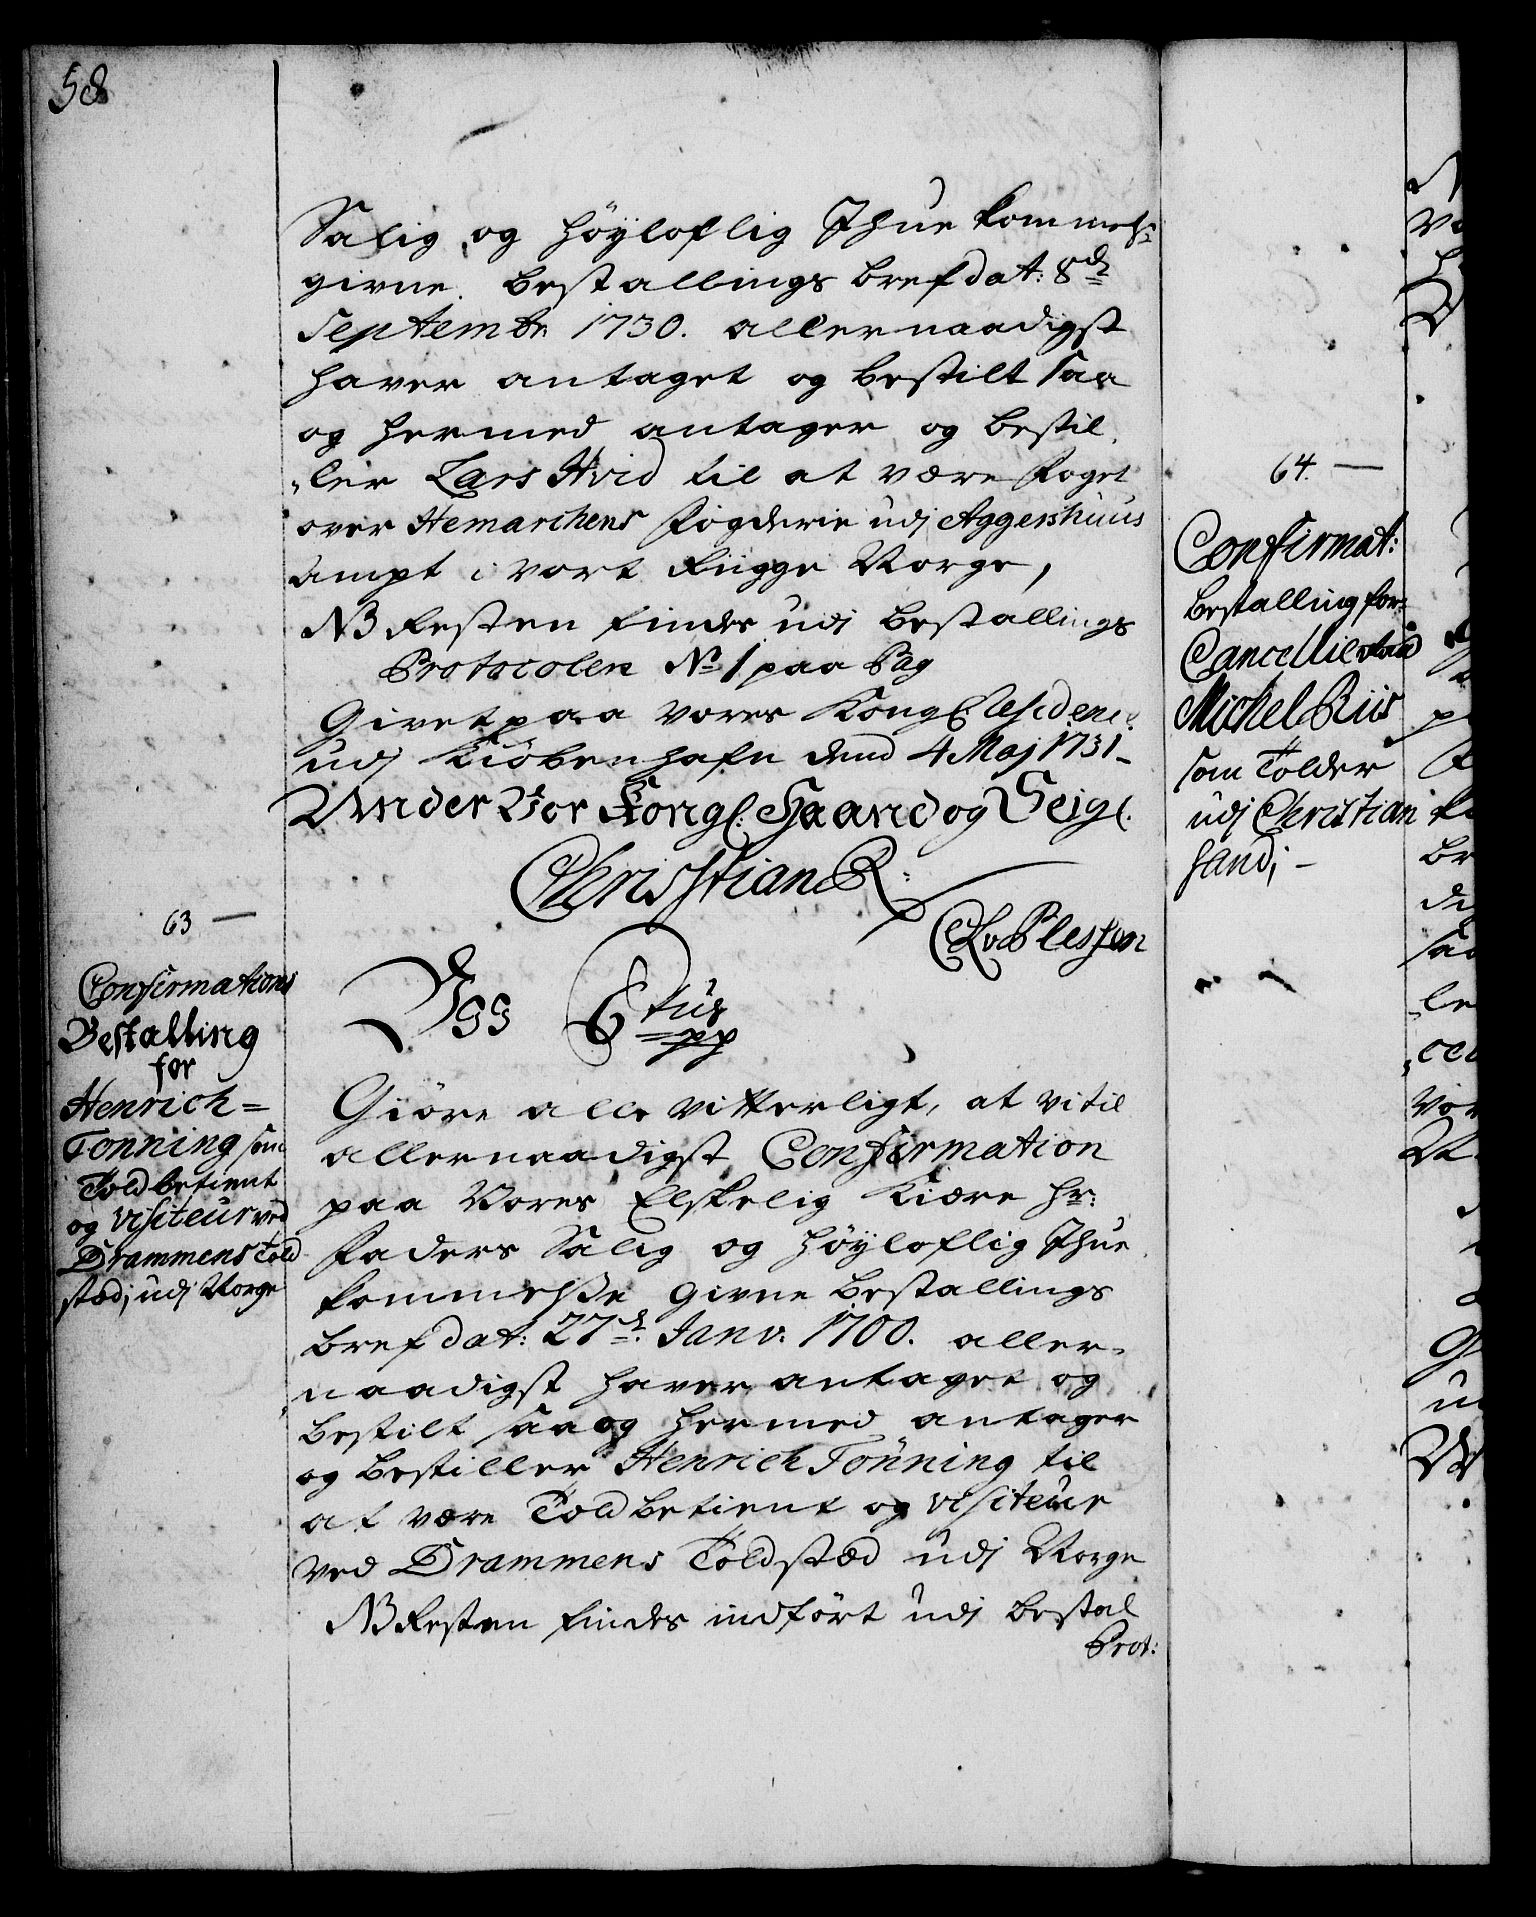 58
Salig og Høyloflig Ihue kommelse
givne bestallings bref dat: 8de
Septembr 1730. allernaadigst
haver antaget og bestilt saa
og hermed antager og bestil,
„ler Lars Hvid til at være foget
over Hemarchens fogderie udj Aggershuus
Ampt i vort Riige Norge,
NB Resten findes udi bestallings
Protocolen No 1 paa Pag
Givet paa vores Kongl: Residence
udj Kiøbenhafn dend 4 Maj 1731-
Under Vor Kongl: Haand og Seigl.
Christian R:
CA v Plessen
63 —
Confirmations
Bestalling
for
Henrich=
Tonning som
Told betient
og Visiteur ved
Drammens Told
stæd; udj Norge
Vgg C6tus
pp
Giøre alle vitterligt, at vi til
allernaadigst Confirmation
paa Vores Elskelig Kiære Hr:
Faders Salig og Høyloflig Ihue
kommelsse givne bestallings
bref dat: 27de Janv: 1700. aller-
„naadigst haver antaget og
bestilt saa og hermed antager
og bestiller Henrich Tönning til
at være Told betient og visiteur
ved Drammens Toldstæd udj Norge
NB Resten findes indført udj bestal
Prot:
64. —
Confirmat:
bestalling for:
Cancellieraad
Michel Riis
som Tolder
udj Christian
sand; -